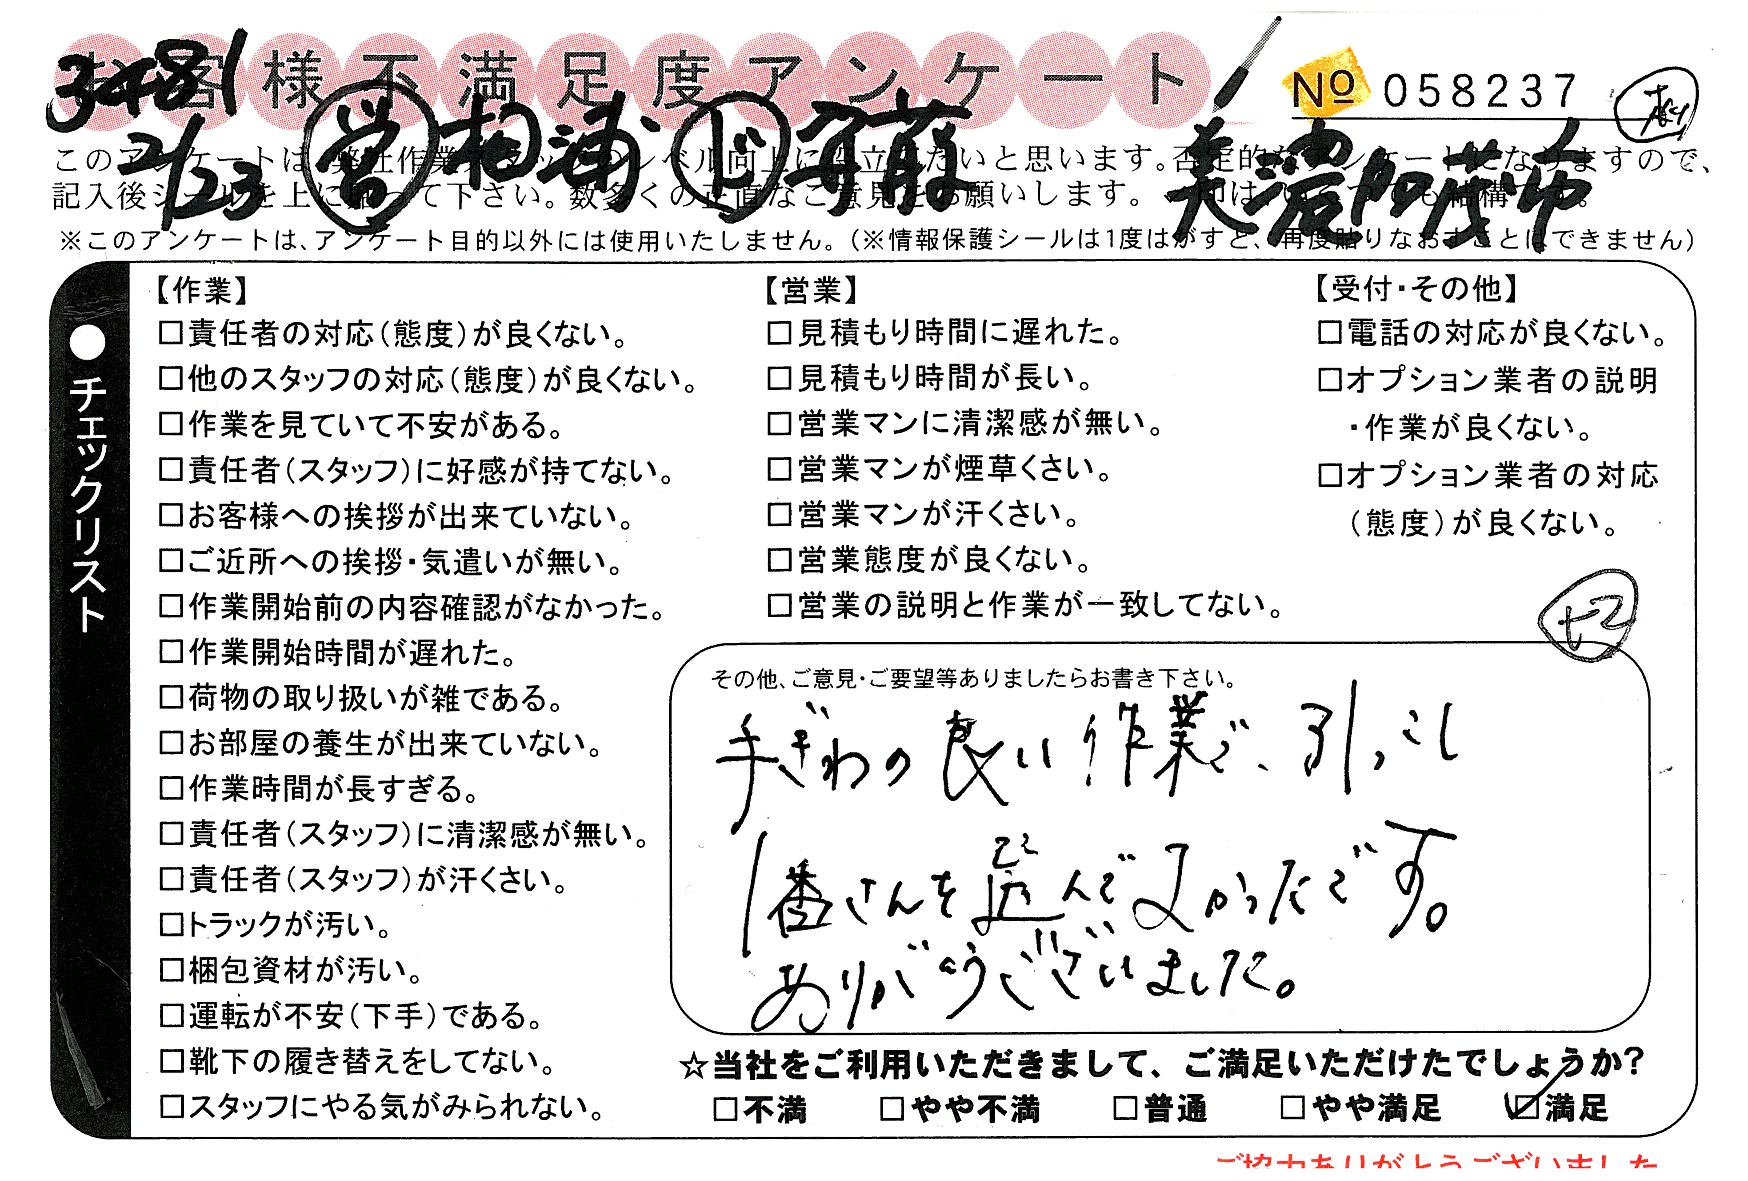 お客様不満足度アンケート
3481
No 058237
2/23 営 柏浦 ド 安藤
美濃加茂市
このアンケートは、弊社作業スタッフのレベル向上に役立てたいと思います。否定的なアンケートになりますので、
記入後シールを上に貼って下さい。数多くの正直なご意見をお願いします。
※このアンケートは、アンケート目的以外には使用いたしません。（※情報保護シールは1度はがすと、再度貼りなおすことはできません）
●チェックリスト
【作業】
□責任者の対応（態度）が良くない。
□他のスタッフの対応（態度）が良くない。
□作業を見ていて不安がある。
□責任者（スタッフ）に好感が持てない。
□お客様への挨拶が出来ていない。
□ご近所への挨拶・気遣いが無い。
□作業開始前の内容確認がなかった。
□作業開始時間が遅れた。
□荷物の取り扱いが雑である。
□お部屋の養生が出来ていない。
□作業時間が長すぎる。
□責任者（スタッフ）に清潔感が無い。
□責任者（スタッフ）が汗くさい。
□トラックが汚い。
□梱包資材が汚い。
□運転が不安（下手）である。
□靴下の履き替えをしてない。
□スタッフにやる気がみられない。
【営業】
□見積もり時間に遅れた。
□見積もり時間が長い。
□営業マンに清潔感が無い。
□営業マンが煙草くさい。
□営業マンが汗くさい。
□営業態度が良くない。
□営業の説明と作業が一致してない。
【受付・その他】
□電話の対応が良くない。
□オプション業者の説明
・作業が良くない。
□オプション業者の対応
（態度）が良くない。
その他、ご意見・ご要望等ありましたらお書き下さい。
手ぎわの良い作業で、引っこし
1番さんを選んでよかったです。
ありがとうございました。
☆当社をご利用いただきまして、ご満足いただけたでしょうか？
□不満 □やや不満 □普通 □やや満足 ☑満足
ご協力ありがとうございました